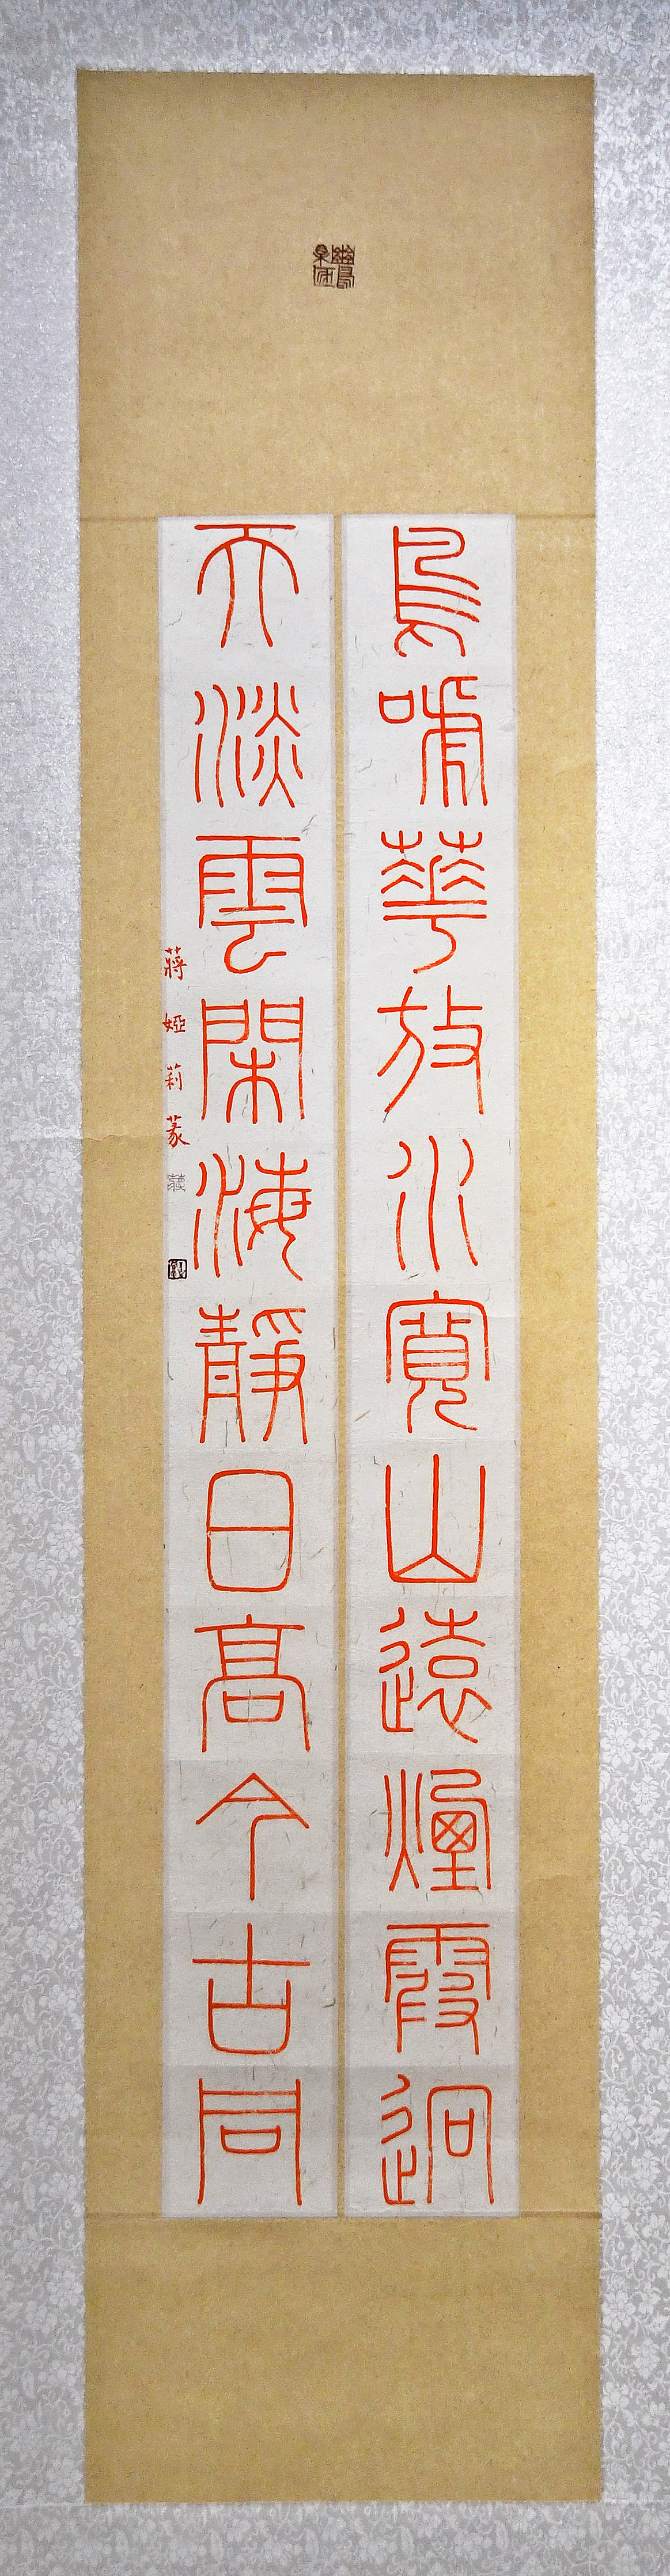 鳥啼華放水寬山遠煙霞迥
天淡雲閑海靜日高今古同
蔣婭莉篆